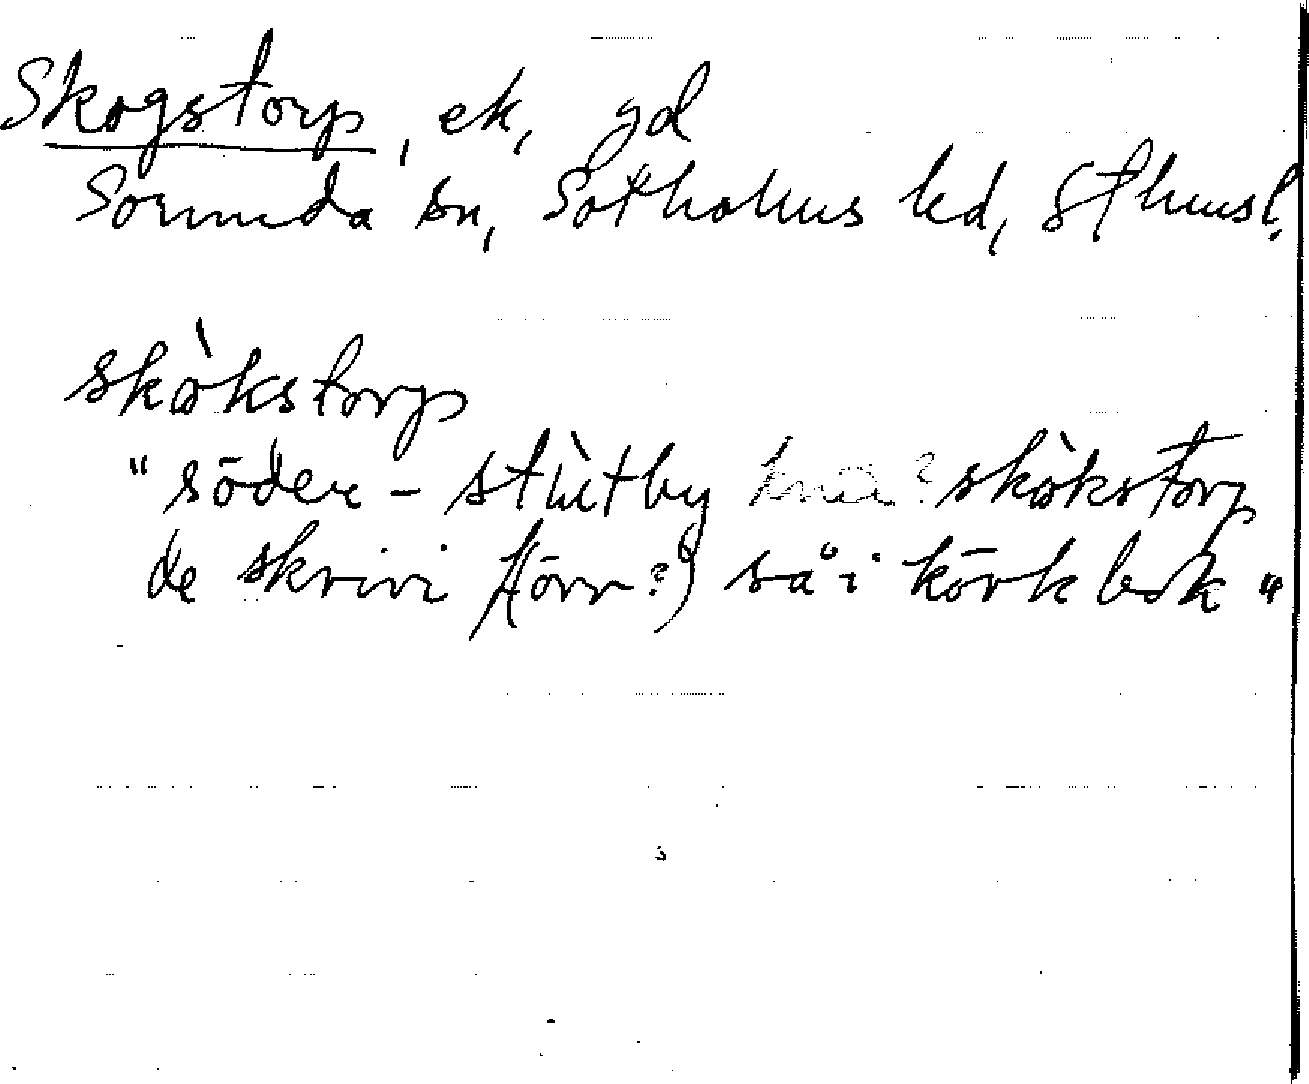 Skogstorp, ek, gd
Sorunda sn, Sotholms hd, Sthmsl.
skòkstorp
"söder - stùtby skòkstorp
de skrivi (förr?) så i körkbok"